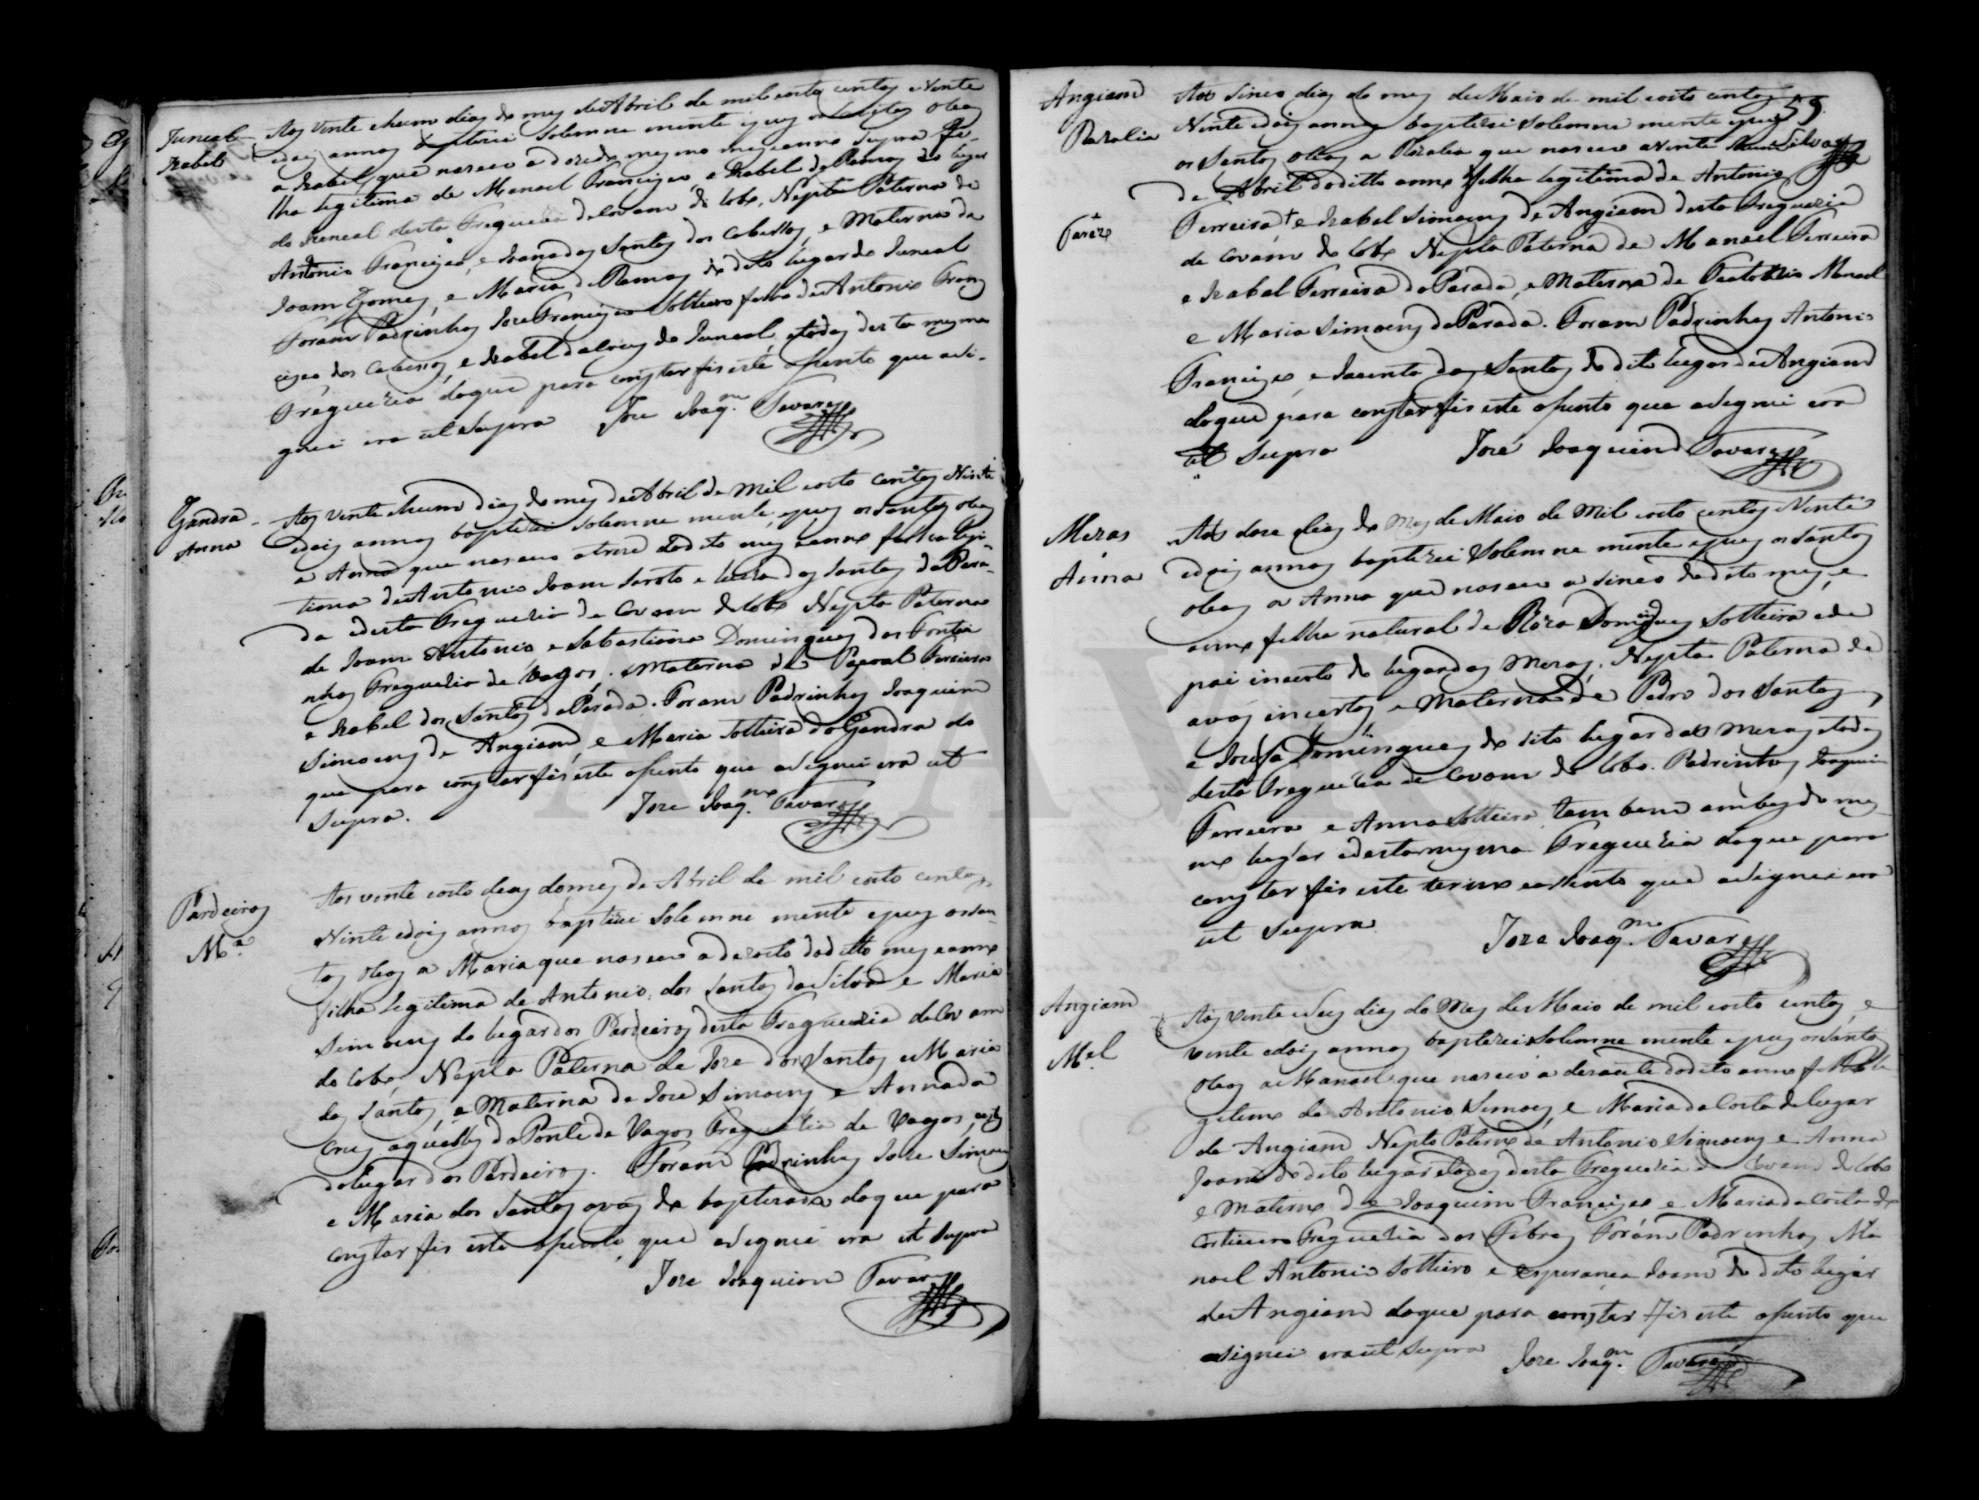 Juncal
Izabel
Aos vinte ehum dias do mes deAbril de mil eoito centos eVinte
edois annos baptizei Solemne mente epus os Santos Oleos
a Izabel que nasceo a doze do mesmo mes eanno supra fi-
lha legitima de Manoel Francisco e Izabel de Ramos do lugar
do Juncal desta Freguezia deCovam do Lobo, Nepta Paterna de
Antonio Francisco, e Joana dos Santos dos Cabessos, e Materna de
Joam Gomes, e Maria de Ramos do dito lugar do Juncal
Foram Padrinhos Joze Francisco Solteiro filho de Antonio Fran
cisco dos Cabessos, e Izabel da Cruz do Juncal, etodos desta mesma
Freguezia doque para constar fis este asento que asi-
gnei era ut Supra Joze Joaq.m Tavares
Gandra
Anna
Aos vinte ehum dias do mes deAbril de Mil eoito centos Vinte
edois annos baptizei Solemne mente, epus os Santos oleos
a Anna que nasceo atreze dodito mes eanno filha legi-
tima deAntonio Joam Sarôto e Luiza dos Santos da Para-
da edesta Freguezia de Covam do Lobo Nepta Paterna
de Joam Antonio e Sebastiana Domingues dos
nhos Freguezia de Vagos. eMaterna de Pascoal Ferreira
e Izabel dos Santos da Parada. Foram Padrinhos Joaquim
Simoens de Angiam, e Maria Solteira da Gandra do
que para constar fis este asento que asignei era ut
Supra. Joze Joaq.m Tavares
Pardeiros
M.a
Aos vinte eoito dias do mes de Abril de mil eoito centos
Vinte edois annos baptizei Solemne mente epus os San
tos oleos a Maria que nasceo a dezoito dodito mes eanno
filha Legitima de Antonio dos Santos da Silva e Maria
Simoens do lugar dos Pardeiros desta Freguezia deCovam
do Lobo, Nepta Paterna de Joze dos Santos eMaria
dos Santos, e Materna de Joze Simoens e Anna da
Cruz aquelles da Ponte de Vagos Freguezia de Vagos, estes
do lugar dos Pardeiros. Foram Padrinhos Joze Simoens
e Maria dos Santos avos da baptizada doque para
constar fis este asento, que asignei era ut supra
Joze Joaquim Tavares
59
Silva
Angiam
Rozalia
Aos Sinco dias do mes deMaio de mil eoito centos
Vinte edois annos baptizei Solemne mente epus
os Santos Oleos a Rozalia que nasceo avinte
de Abril doditto anno filha legitima de Antonio
Ferreira + e Izabel Simoens de Angiam desta Freguezia
de Covam do Lobo Nepta Paterna de Manoel Ferreira
e Izabel Ferreira da Parada, e Materna de Manoel
e Maria Simoens da Parada. Foram Padrinhos Antonio
Francisco, e Jacinta dos Santos do dito lugar de Angiam
doque para constar fis este asento que asignei era
ut Supra Joze Joaquim Tavares
Mezas
Anna
Aos doze dias do Mes de Maio de Mil eoito centos Vinte
edois annos baptizei Solemne mente epus os Santos
oleos a Anna que nasceo a Sinco dodito mes, e
anno filha natural de Roza Domingues Solteira ede
pai incerto do lugar das Mezas, Nepta Paterna de
avos incertos, e Materna de Pedro dos Santos
e Josefa Domingues do dito lugar das Mezas etodos
desta Freguezia de Covam do Lobo. Padrinhos Joaquim
Ferreira e Anna Solteira, tambem ambos do mes
mo lugar edesta mesma Freguezia doque para
constar fis este termo easento que asignei era
ut Supra Joze Joaq.m Tavares
Angiam
M.el
Aos vinte eseis dias do Mes deMaio de mil eoito centos, e
vinte edois annos baptizei Solemne mente epus os Santos
Oleos a Manoel que nasceo a dezasete dodito anno filho le
gitimo de Antonio Simoens, e Maria da Costa do lugar
de Angiam Nepto Paterno de Antonio Simoens e Anna
Joam do dito lugar etodos desta Freguezia de Covam do Lobo
e Materno de Joaquim Francisco e Maria da Costa do
Cortiçeiro Freguezia dos Febres Foram Padrinhos Ma
noel Antonio Solteiro e Esperança Joam do dito lugar
de Angiam doque para constar fis este asento que
asignei eraut Supra Joze Joaq.m Tavares